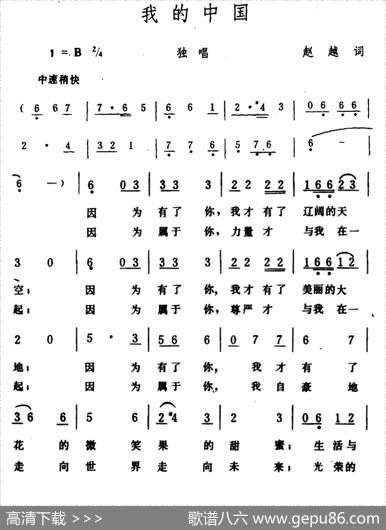 我的中国
1=B 2/4 独唱 赵越词
中速稍快
(6 6 6 7 | 7·6 5 | 6 6 1 | 2·#4 3 | 0 6 6 6 |
2·4 | 3 2 1 | 7 7 6 | 5 7 6 | 6 - |
6 -) | 6 0 3 | 3 3 | 3 2 2 2 | 1 6 6 2 3 |
因 为 有了 你,我才有了 辽阔的天
因 为 属于 你,力量才 与我在一
3 0 | 6 0 3 | 3 3 | 3 2 2 2 | 1 6 6 1 2 |
空; 因 为 有了 你,我才有了 美丽的大
起; 因 为 属于 你,尊严才 与我在一
2 0 | 5·3 | 5 6 6 | 0 7 7 | 6 7 |
地; 因 为 有了 你, 我才 有了
起; 因 为 属于 你, 我自 豪地
3 6 6 | 5 6 | 2 #4 3 | 2 3 | 0 6 1 2 |
花 的 微 笑 果 的 甜 蜜; 生活与
走 向 世 界 走 向 未 来; 光荣的
高清下载 >>> 歌谱八六 www.gepu86.com